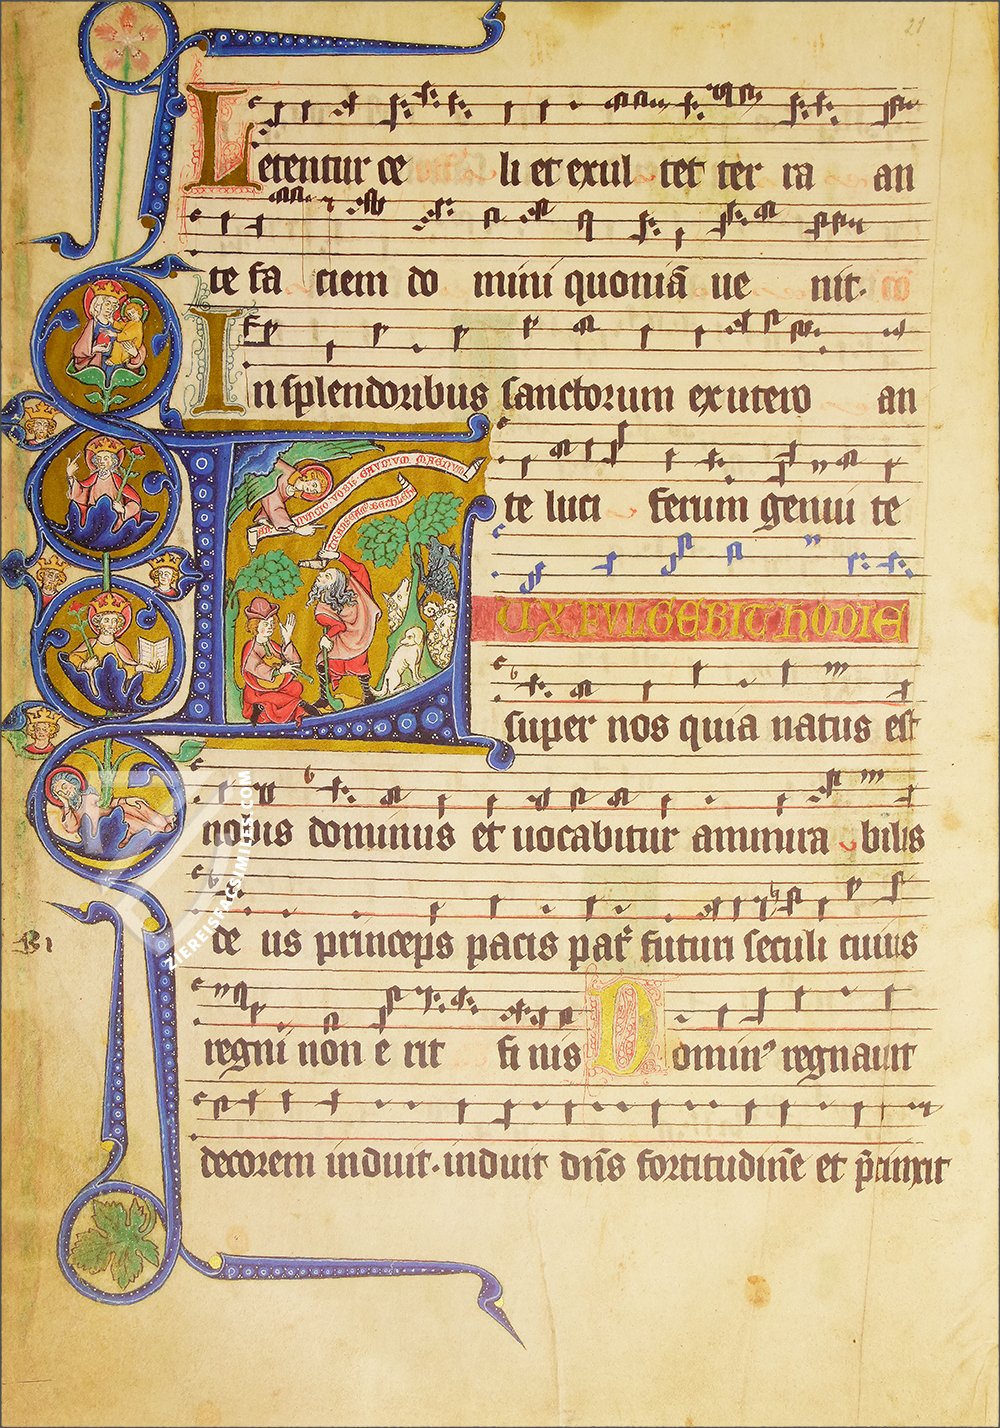 21
Letentur ce li et exul tet ter ra an
te fa ciem do mini quoniā ue nit. cō
In splendoribus sanctorum ex utero an
ANNUNCIO VOBIS GAVDIVM MAGNVM
TRANSEAMUS BETHLEHE
te luci ferum genui te
LUX FVLGEBIT HODIE
super nos quia natus est
nobis dominus et uocabitur ammira bilis
de us princeps pacis pat̄ futuri seculi cuius
regni non e rit fi nis Domin⁹ regnauit
decorem induit. induit dn̄s fortitudinē et p̄cinxit
ZIEREISFACSIMILES.COM